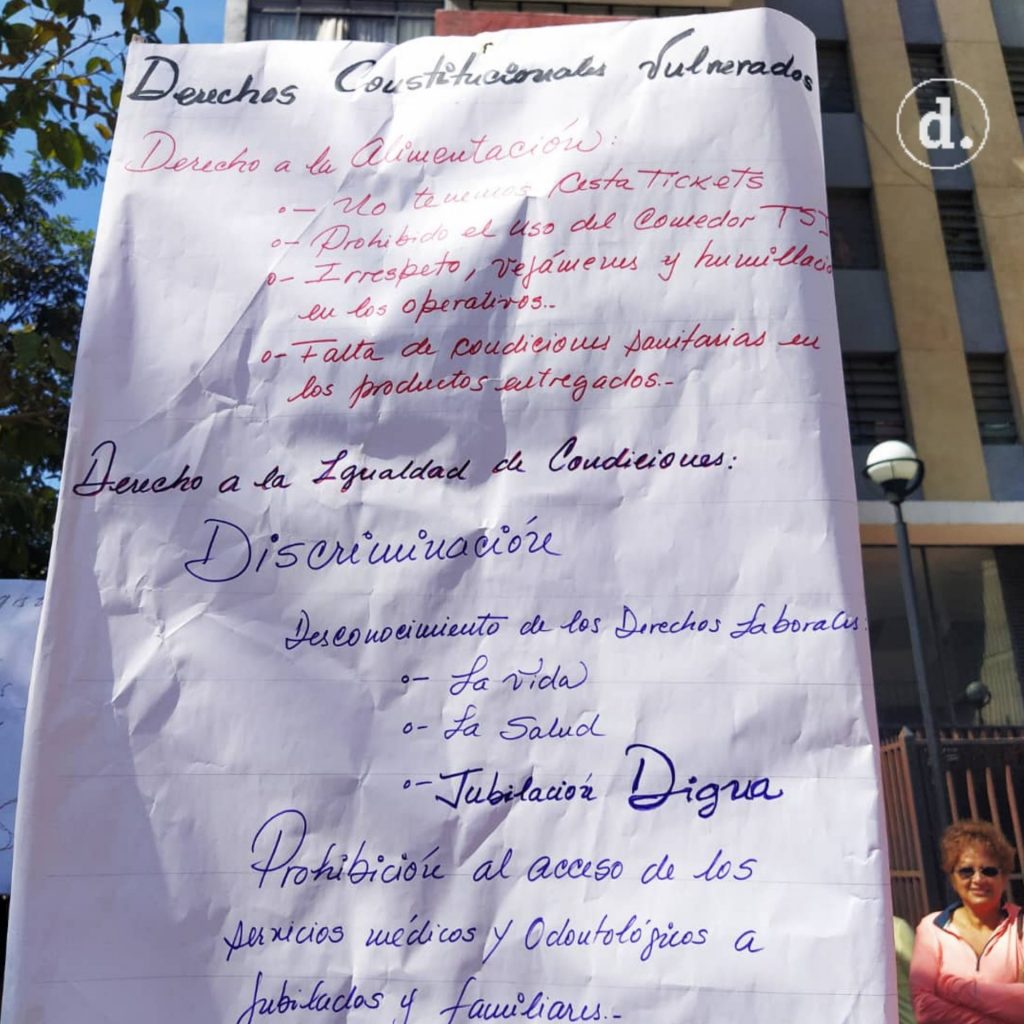 Derechos Constitucionales Vulnerados
d.
Derecho a la Alimentación:
o- No tenemos Cesta TICKETS
o- Prohibido el uso del Comedor TSJ
o- Irrespeto, vejámenes y humillacio
en los operativos.-
o- Falta de condiciones sanitarias en
los productos entregados.-
Derecho a la Igualdad de Condiciones:
Discriminación
Desconocimiento de los Derechos Laborales:
o- La vida
o- La Salud
o- Jubilación Digna
Prohibición al acceso de los
servicios médicos y Odontológicos a
Jubilados y familiares.-